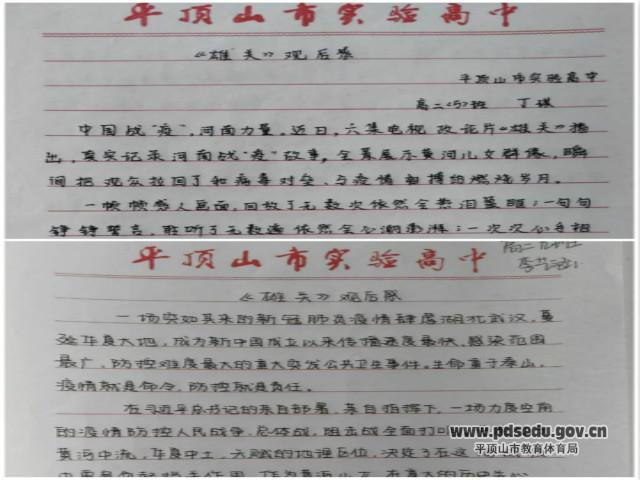 平顶山市实验高中
《雄关》观后感
平顶山市实验高中
高二〈5〉班 丁琪
中国战"疫",河南力量。近日,六集电视政论片《雄关》播
出,真实记录河南战"疫"故事,全景展示黄河儿女群像,瞬
间把观众拉回了和病毒对垒、与疫情相搏的燃烧岁月。
一帧帧感人画面,回放了无数次依然会热泪盈眶;一句句
铮铮誓言,聆听了无数遍依然会心潮澎湃;一次次
平顶山市实验高中
高二
《雄关》观后感
一场突如其来的新冠肺炎疫情肆虐湖北武汉,蔓
延华夏大地,成为新中国成立以来传播速度最快、感染范围
最广、防控难度最大的重大突发公共卫生事件。生命重于泰山,
疫情就是命令,防控就是责任。
在习近平总书记的亲自部署、亲自指挥下,一场力度空前
的疫情防控人民战争、总体战、阻击战全面打响
黄河中流,华夏中土,天赋的地理区位,决定了在这
www.pdsedu.gov.cn
平顶山市教育体育局